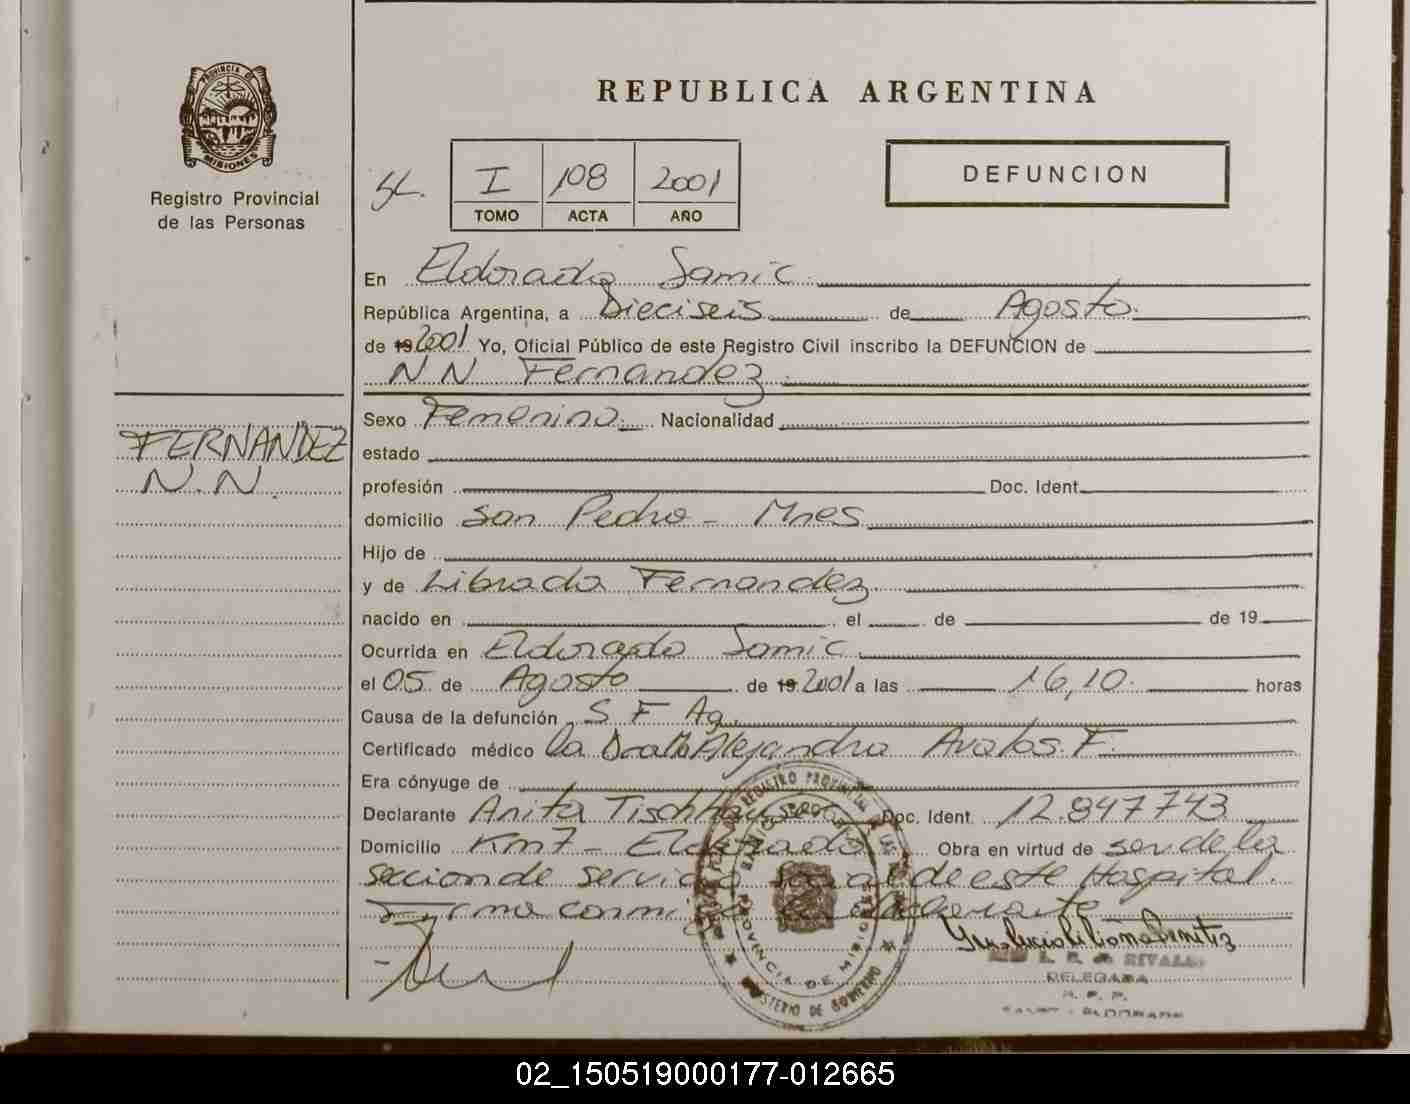 PROVINCIA DE
MISIONES
Registro Provincial
de las Personas
FERNANDEZ
N.N.
REPUBLICA ARGENTINA
I 108 2001
TOMO ACTA AÑO
DEFUNCION
En Eldorado Samic
República Argentina, a Dieciseis de Agosto
de 19 2001 Yo, Oficial Público de este Registro Civil inscribo la DEFUNCION de
N N Fernandez
Sexo Femenino Nacionalidad
estado
profesión Doc. Ident.
domicilio San Pedro - Mnes
Hijo de
y de Librada Fernandez
nacido en el de de 19
Ocurrida en Eldorado Samic
el 05 de Agosto de 19 2001 a las 16,10 horas
Causa de la defunción S F Ag.
Certificado médico la Alejandra Avalos F.
Era cónyuge de
Declarante Anita Doc. Ident. 12.847743
Domicilio Km7 - Eldorado Obra en virtud de ser de la
seccion de servicio social de este Hospital.
Firma conmigo la declarante
REGISTRO PROVINCIAL DE LAS
PROVINCIA DE MISIONES
MINISTERIO DE GOBIERNO
Benitez
DELEGADA
R. P. P.
ELDORADO
02_150519000177-012665